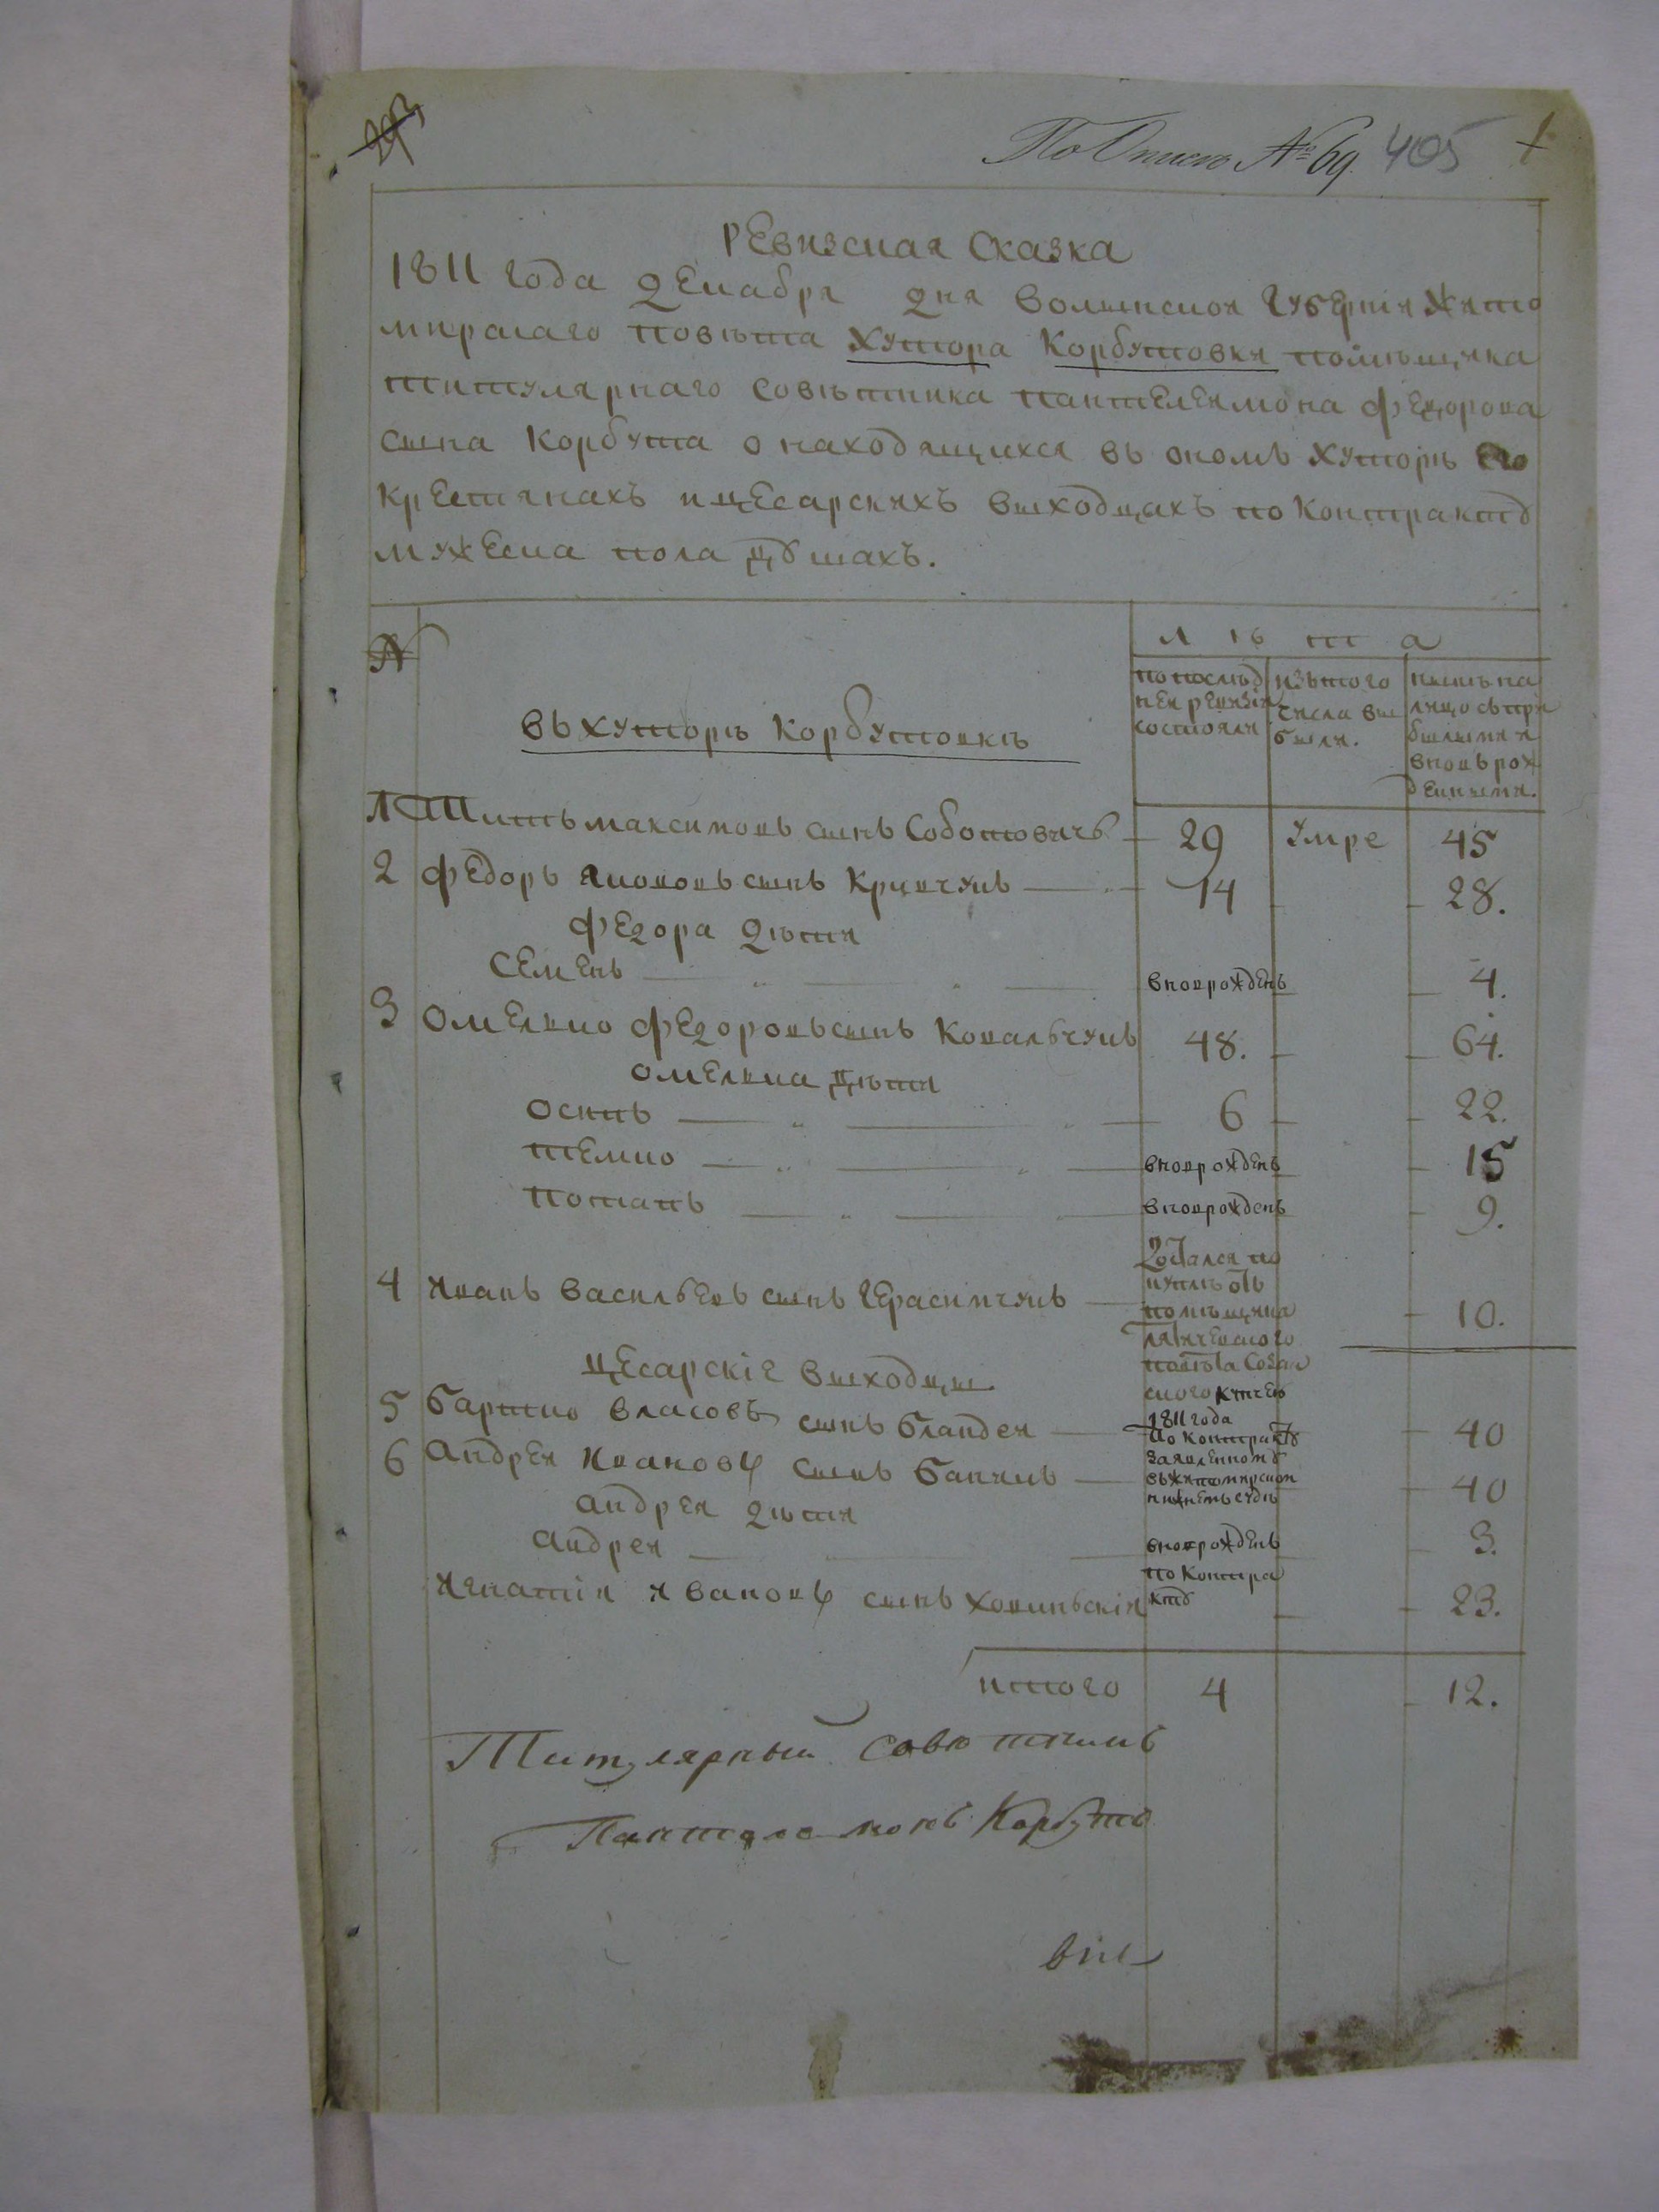 По Описи № 69. 405 1
Ревизская Сказка
1811 года декабря дня Волынской Губернiи Жито
мирскаго повѣта Хутора Корбутовки помѣщика
титулярнаго совѣтника Пантелеимона Федорова
сына Корбута о находящихся въ ономъ хуторѣ его
крестянахъ и цесарскихъ выходцахъ по контракту
мужеска пола душахъ.
№
Л ѣ т а
по послѣд
ней ревизiи
состояли
изътого
числа вы
были.
нынѣ на
лицо съ при
былыми и
вновь рож
денными.
въ хуторѣ Корбутовкѣ
1 Титъ максимовъ сынъ Соботовичъ 29 умре 45
2 Федоръ Якововъ сынъ Кривчукъ 14 28.
Федора дѣти
Семенъ вноврожденъ 4.
3 Омелько Федоровъ сынъ Ковальчукъ 48. 64.
Омелька дѣти
Осипъ 6 22.
Темко вноврожденъ 15
Потапъ вноврожденъ 9.
4 Иванъ Васильевъ сынъ Герасимчукъ 10.
достался по
куплѣ отъ
помѣщика
повѣта
ского купчею
1811 года
Цесарскiе выходцы
5 Бартко Власовъ сынъ Бландей 40
По контракту
заявленному
въ житомирском
нижнемъ судѣ
6 Андрей Ивановъ сынъ 40
Андрея дѣти
Андрей вноврожденъ 3.
Игнатiй Ивановъ сынъ Ховинскiй 23.
по контра
кту
итого 4 12.
Титулярный Советникъ
Панталемонъ Корбутъ